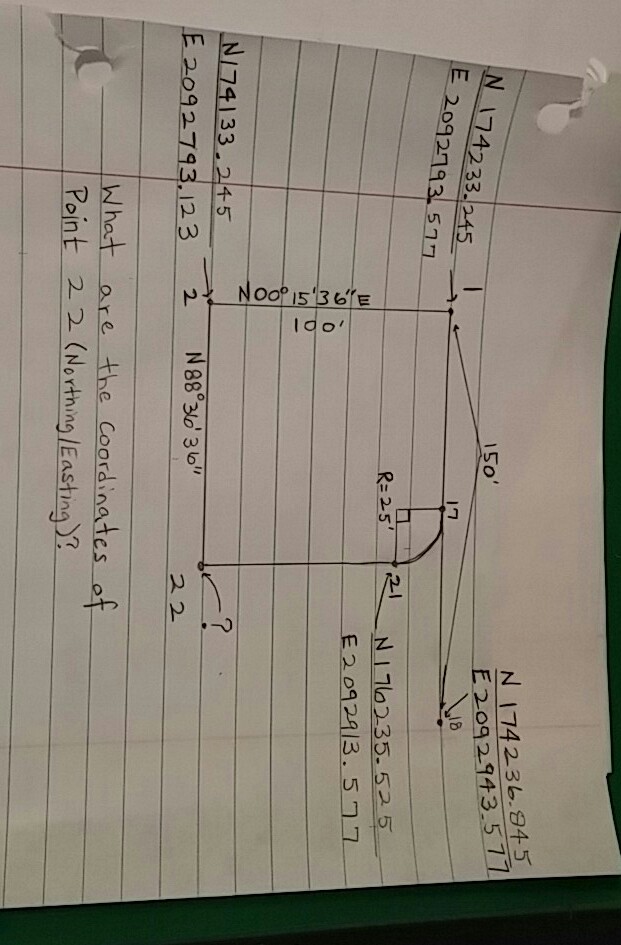 N 174233.245
E 2092793.577
1
150'
N 174236.845
E 2092943.577
18
17
R=25'
21
N 176235.525
E 2092913.577
N00°15'36"E
100'
N174133.245
E 2092793.123
2
N88°36'36"
22
?
What are the coordinates of
Point 22 (Northing/Easting)?